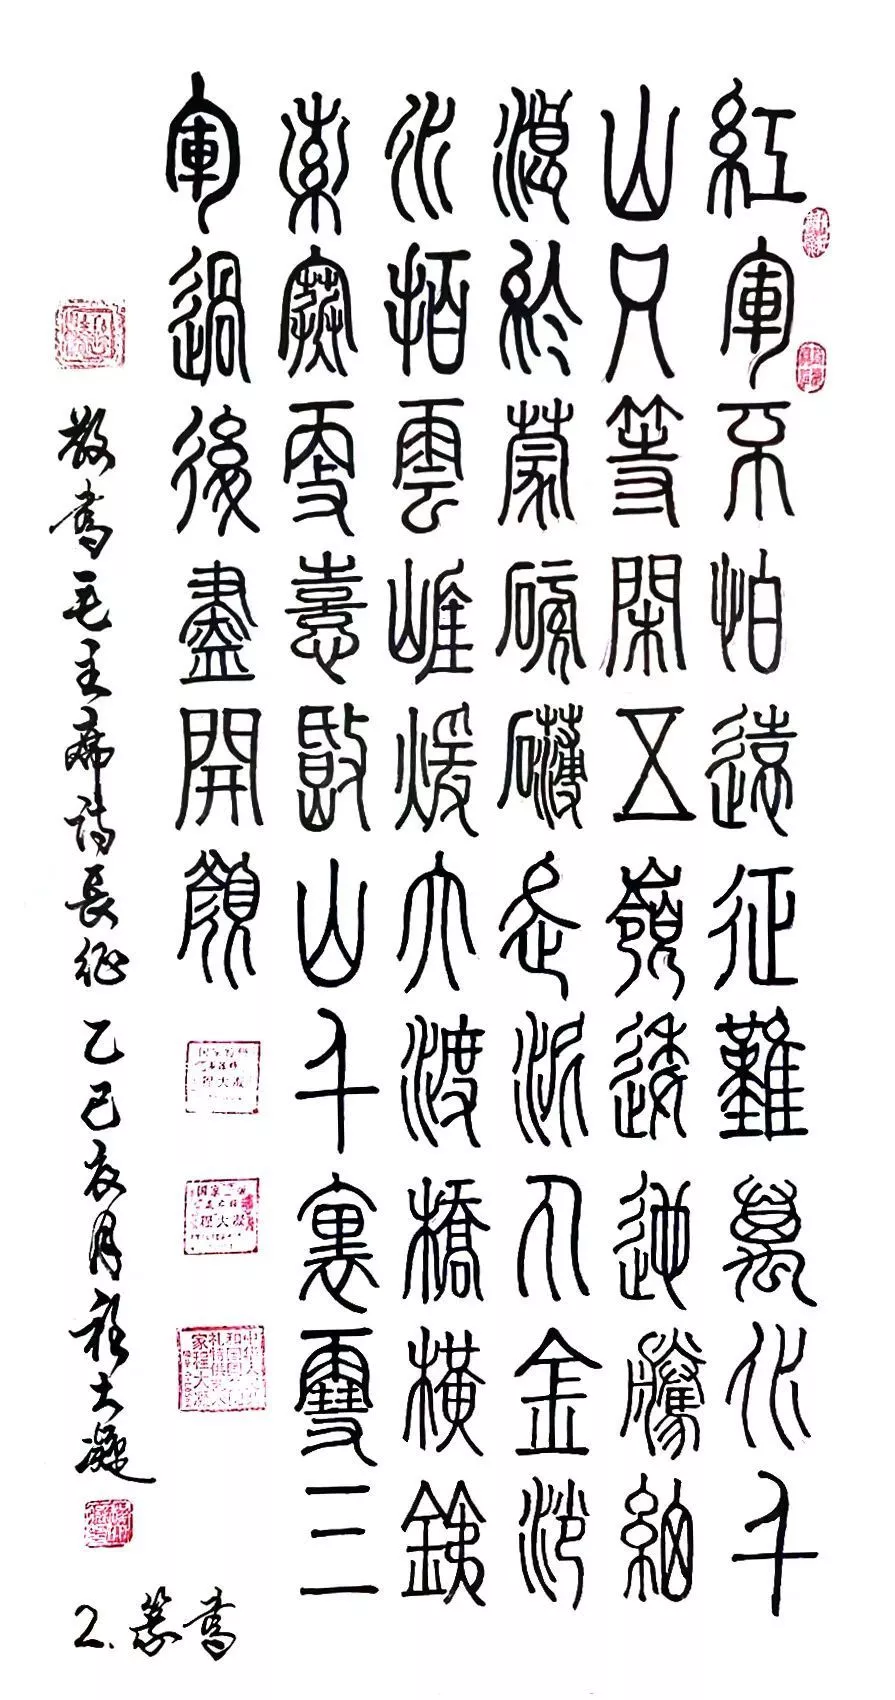 紅軍不怕遠征難萬水千
山只等閑五嶺逶迤騰細
浪於蒙磅礴走泥丸金沙
水拍雲崖暖大渡橋橫鐵
索寒更喜岷山千裏雪三
軍過後盡開顏
敬書毛主席詩長征 乙巳夏月程大凝
2.篆書